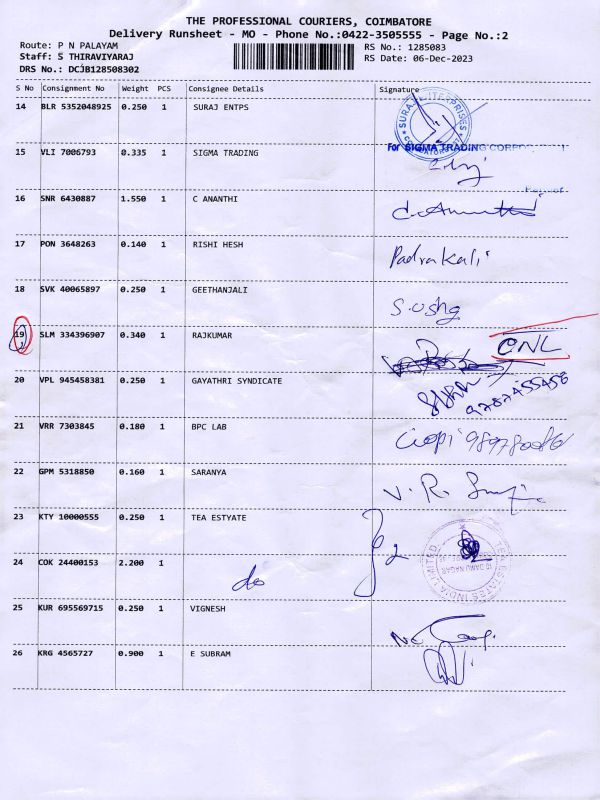 THE PROFESSIONAL COURIERS, COIMBATORE
Delivery Runsheet - MO - Phone No.:0422-3505555 - Page No.:2
Route: P N PALAYAM RS No.: 1285083
Staff: S THIRAVIYARAJ RS Date: 06-Dec-2023
DRS No.: DCJB128508302
S No Consignment No Weight PCS Consignee Details Signature
14 BLR 5352048925 0.250 1 SURAJ ENTPS
For SIGMA TRADING
15 VLI 7006793 0.335 1 SIGMA TRADING
16 SNR 6430887 1.550 1 C ANANTHI
17 PON 3648263 0.140 1 RISHI HESH Padrakali
18 SVK 40065897 0.250 1 GEETHANJALI S.Usha
19 SLM 334396907 0.340 1 RAJKUMAR CNL
20 VPL 945458381 0.250 1 GAYATHRI SYNDICATE 9787455456
21 VRR 7303845 0.180 1 BPC LAB
22 GPM 5318850 0.160 1 SARANYA V. R.
23 KTY 10000555 0.250 1 TEA ESTYATE
24 COK 24400153 2.200 1 do
25 KUR 695569715 0.250 1 VIGNESH
26 KRG 4565727 0.900 1 E SUBRAM